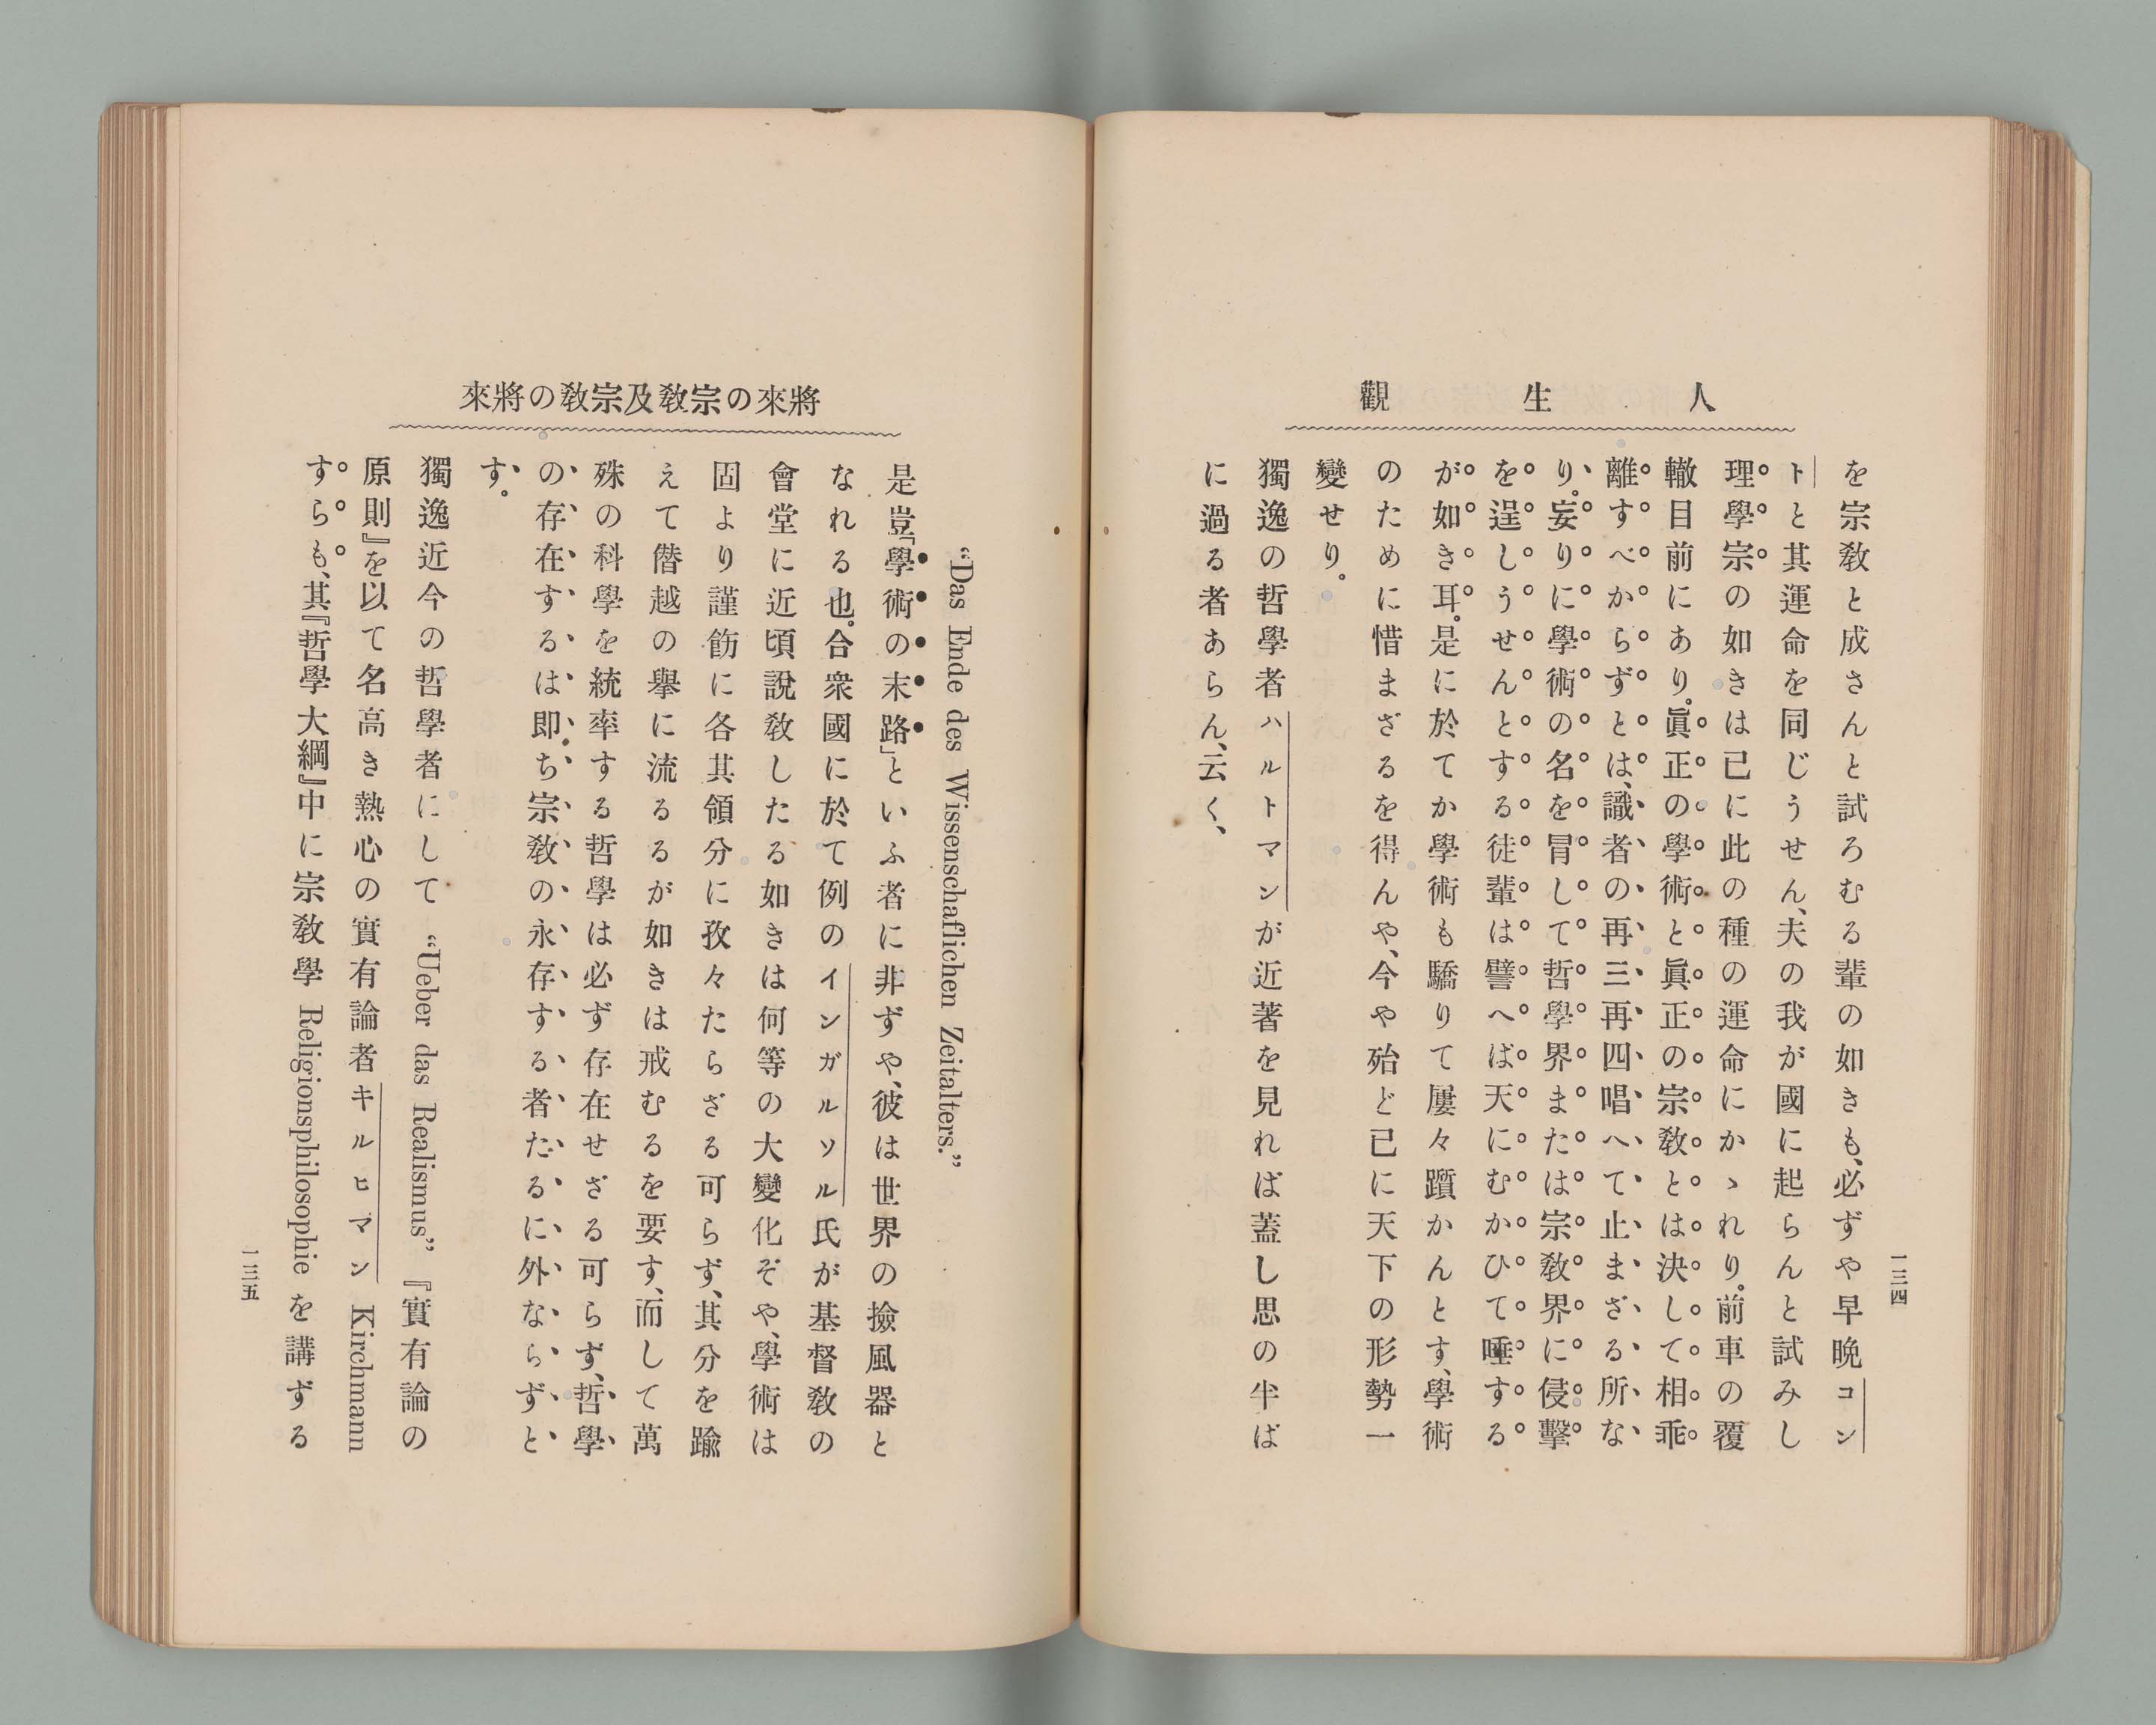 人生觀
一三四
を宗敎と成さんと試ろむる輩の如きも、必ずや早晩コン
トと其運命を同じうせん、夫の我が國に起らんと試みし
理學宗の如きは已に此の種の運命にかゝれり。前車の覆
轍目前にあり。眞正の學術と眞正の宗敎とは決して相乖
離すべからずとは、識者の再三再四唱へて止まざる所な
り。妄りに學術の名を冒して哲學界または宗敎界に侵擊
を逞しうせんとする徒輩は譬へば天にむかひて唾する
が如き耳。是に於てか學術も驕りて屢々躓かんとす、學術
のために惜まざるを得んや、今や殆ど已に天下の形勢一
變せり。
獨逸の哲學者ハルトマンが近著を見れば蓋し思の半ば
に過る者あらん、云く、
將來の宗敎及宗敎の將來
“Das Ende des Wissenschaflichen Zeitalters.”
是豈『學術の末路』といふ者に非ずや、彼は世界の撿風器と
なれる也。合衆國に於て例のインガルソル氏が基督敎の
會堂に近頃說敎したる如きは何等の大變化ぞや、學術は
固より謹飭に各其領分に孜々たらざる可らず、其分を踰
えて僭越の擧に流るるが如きは戒むるを要す、而して萬
殊の科學を統率する哲學は必ず存在せざる可らず、哲學
の存在するは即ち宗敎の永存する者たるに外ならずと
す。
獨逸近今の哲學者にして “Ueber das Realismus” 『實有論の
原則』を以て名高き熱心の實有論者キルヒマン Kirchmann
すらも、其『哲學大綱』中に宗敎學 Religionsphilosophie を講ずる
一三五